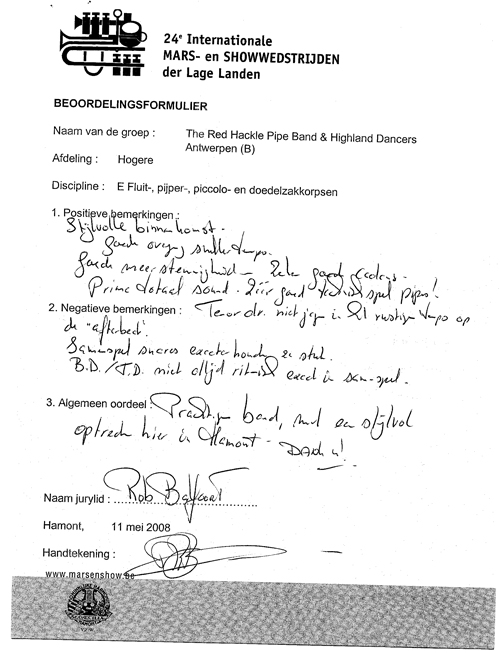 24e Internationale
MARS- en SHOWWEDSTRIJDEN
der Lage Landen
BEOORDELINGSFORMULIER
Naam van de groep : The Red Hackle Pipe Band & Highland Dancers
Antwerpen (B)
Afdeling : Hogere
Discipline : E Fluit-, pijper-, piccolo- en doedelzakkorpsen
1. Positieve bemerkingen :
Stijlvolle binnenkomst -
Goede overgang sneller tempo.
Goede meerstemmigheid - goede
Prima totaal sound - Zéér goed spel pipes!
2. Negatieve bemerkingen : Tenor dr. niet in rustige tempo op
de "afterbeat".
Samenspel houding en
B.D. / T.D. niet altijd exact in samenspel.
3. Algemeen oordeel : Prachtige band, met een stijlvol
optreden hier in Hamont - Dank u!
Naam jurylid : Rob
Hamont, 11 mei 2008
Handtekening :
www.marsenshow.be